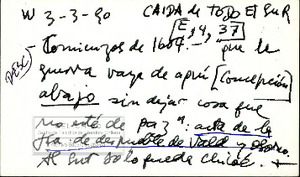 W 3-3-90 CAIDA de TODO El SUR
E, 4, 37
DESC)- Comienzos de 1604.- que la
guerra vaya de aquí [Concepción]
abajo sin dejar cosa que
no esté de paz": acta de la
de Vald y Osorno.
Al sur solo queda Chiloé.